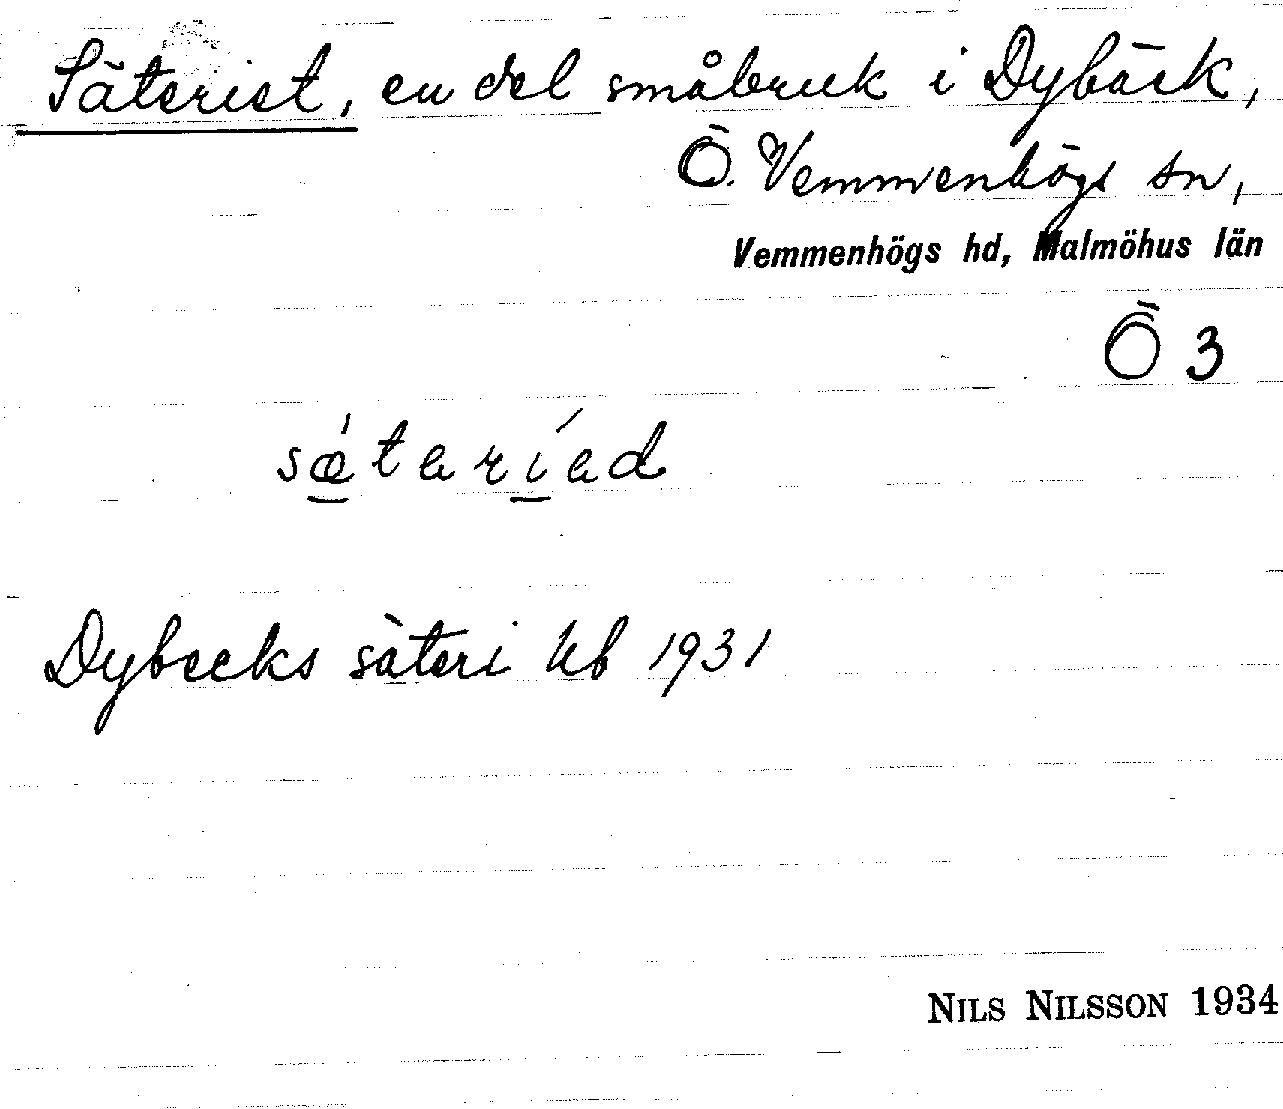 Säteriet, en del småbruk i Dybäck,
Ö. Vemmenhögs sn,
Vemmenhögs hd, Malmöhus län
Ö 3
sǽtaríad
Dybecks säteri kb 1931
NILS NILSSON 1934